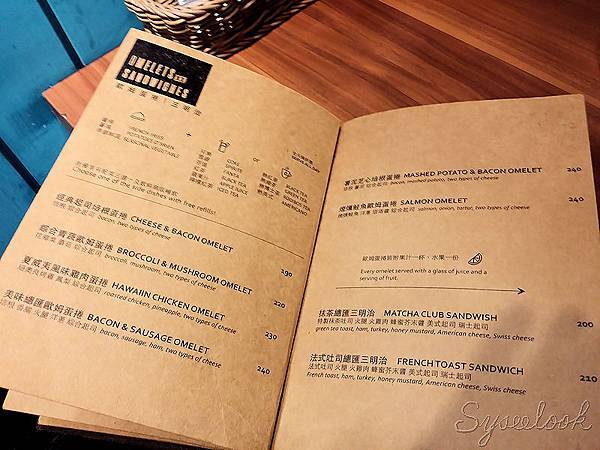 OMELETS
SANDWICHES
歐姆蛋捲｜三明治
薯條 FRENCH FRIES
POTATOES O'BRIEN
SEASONAL VEGETABLE
+
可樂 COKE
雪碧 SPRITE
芬達 FANTA
紅茶 BLACK TEA
APPLE JUICE
ICED TEA
or
BLACK TEA
GREEN TEA
TEA
TEA
AMERICANO
Choose one of the side dishes with free refills!
經典起司培根蛋捲 CHEESE & BACON OMELET
培根 綜合起司 bacon, two types of cheese
190
綜合青蔬歐姆蛋捲 BROCCOLI & MUSHROOM OMELET
花椰菜 蘑菇 綜合起司 broccoli, mushroom, two types of cheese
220
夏威夷風味雞肉蛋捲 HAWAIIN CHICKEN OMELET
鳳梨 綜合起司 roasted chicken, pineapple, two types of cheese
230
美味總匯歐姆蛋捲 BACON & SAUSAGE OMELET
培根 香腸 火腿 洋蔥 綜合起司 bacon, sausage, ham, two types of cheese
240
薯泥芝心培根蛋捲 MASHED POTATO & BACON OMELET
培根 薯泥 綜合起司 bacon, mashed potato, two types of cheese
240
燻鮭魚歐姆蛋捲 SALMON OMELET
燻鮭魚 洋蔥 塔塔醬 綜合起司 salmon, onion, tartar, two types of cheese
240
歐姆蛋捲皆附果汁一杯、水果一份
Every omelet served with a glass of juice and a
serving of fruit.
抹茶總匯三明治 MATCHA CLUB SANDWISH
特製抹茶吐司 火腿 火雞肉 蜂蜜芥末醬 美式起司 瑞士起司
green tea toast, ham, turkey, honey mustard, American cheese, Swiss cheese
200
法式吐司總匯三明治 FRENCH TOAST SANDWICH
法式吐司 火腿 火雞肉 蜂蜜芥末醬 美式起司 瑞士起司
French toast, ham, turkey, honey mustard, American cheese, Swiss cheese
210
Syseelook